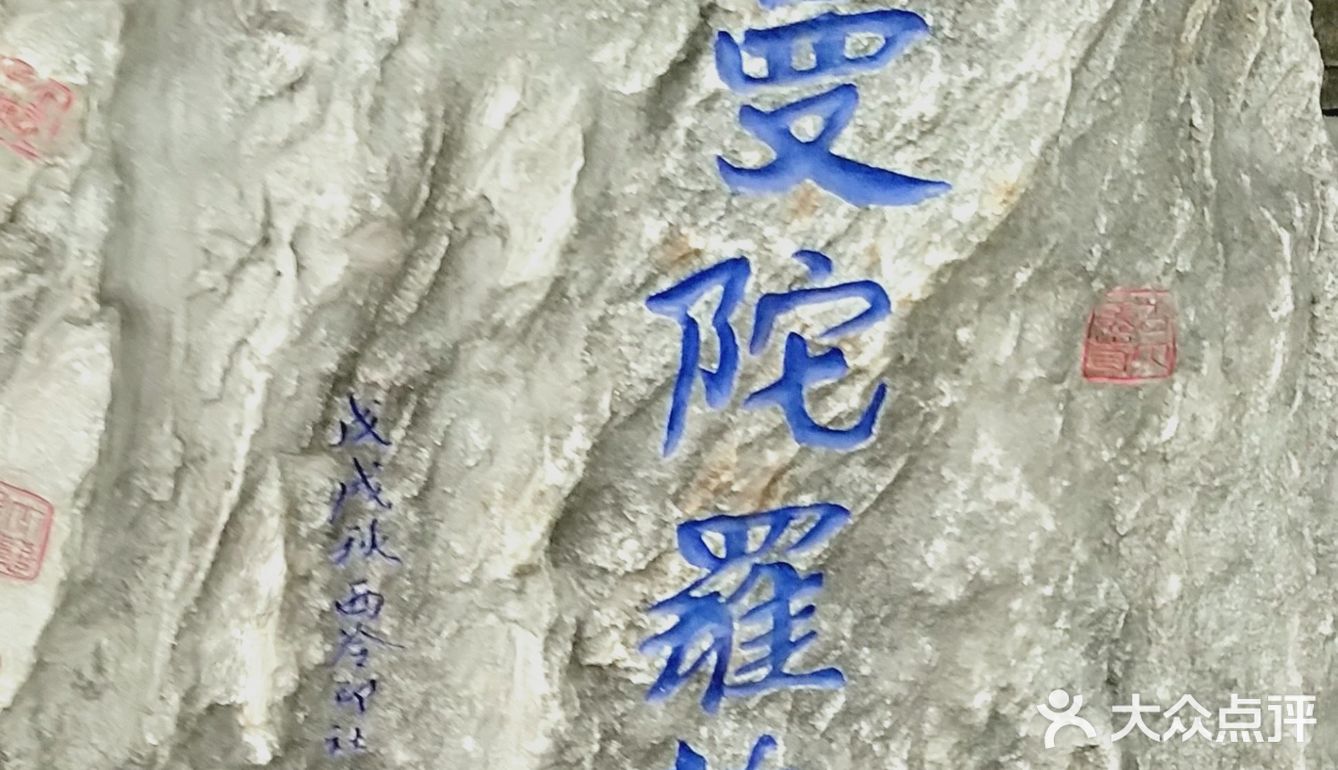 曼陀羅
戊戌秋西泠印社
大众点评